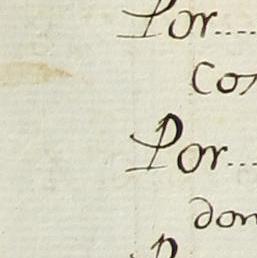 Por....
Cos
Por...
don
P